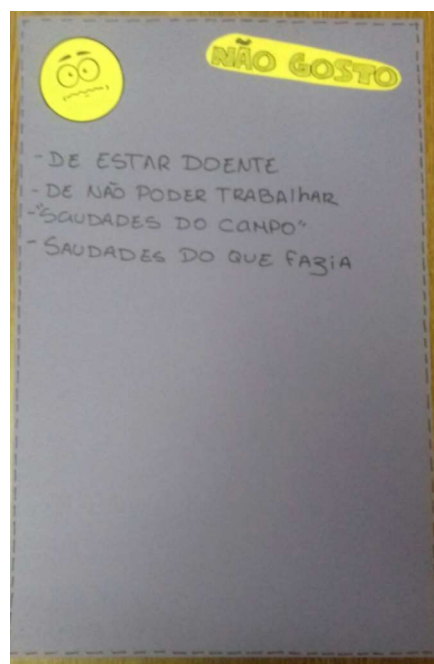 NÃO GOSTO
- DE ESTAR DOENTE
- DE NÃO PODER TRABAlhAR
- "SaUDADES DO CaMPO"
- SAUDADES DO QUE FAZIA